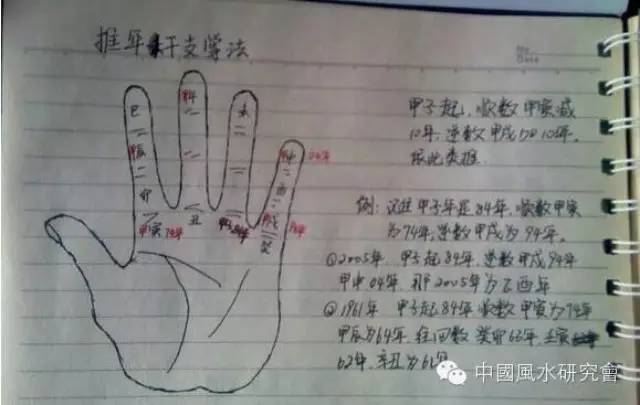 推年干支掌法
No.
Date
甲子起,顺数甲寅减
10年,逆数甲戌加10年。
依此类推
例:记住甲子年是84年,顺数甲寅
为74年,逆数甲戌为94年。
①2005年 甲子起84年,逆数甲戌94年
甲申04年,那2005年为乙酉年
②1961年 甲子起84年顺数甲寅为74年
甲辰为64年,往回数癸卯63年,壬寅
62年,辛丑为61年
巳
午
未
甲辰
甲申
04年
酉
卯
甲寅 74年
丑
甲子84年
甲戌
94年
中國風水研究會